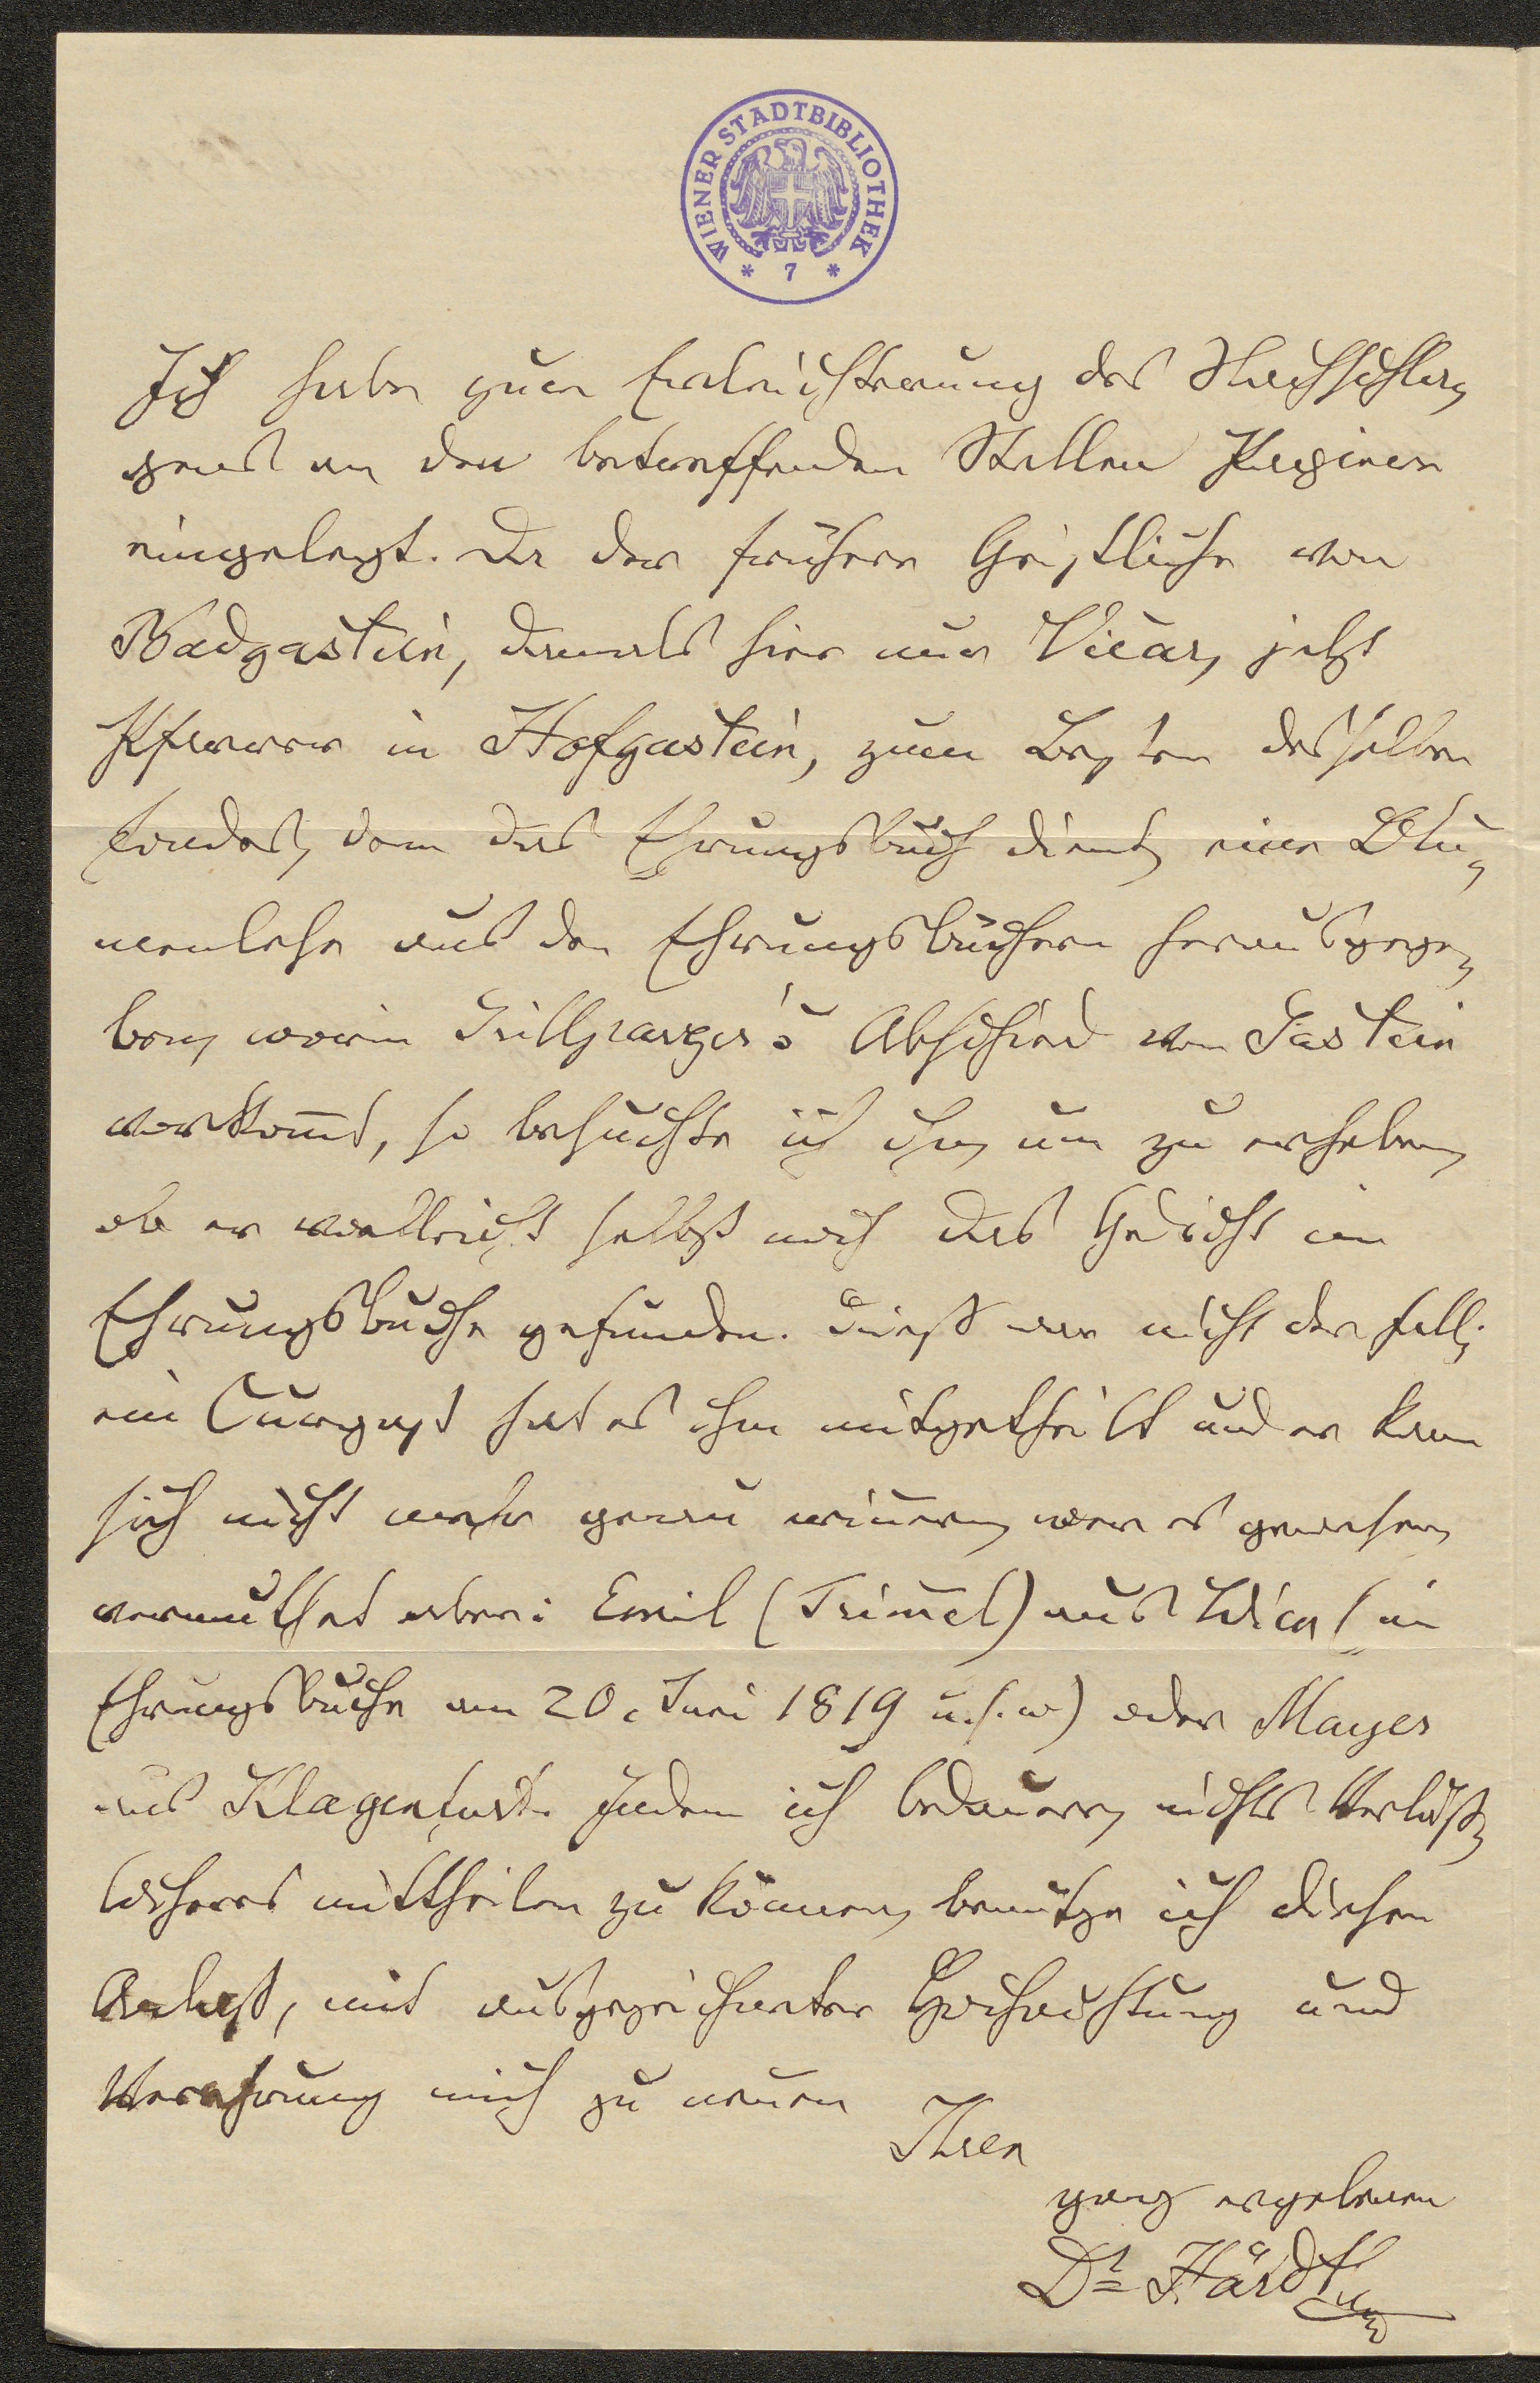 WIENER STADTBIBLIOTHEK
* 7 *
Ich habe zur Erleichterung des Nachschla-
gens an den betreffenden Stellen Papiere
eingelegt. Da der frühere Geistliche von
Badgastein, damals hier nur Vicar, jetzt
Pfarrer in Hofgastein, zum Besten desselben
Fondes, dem das Ehrungsbuch dient, eine Blu-
menlese aus den Ehrungsbüchern herausgege-
ben, worin Grillparzer's Abschied von Gastein
vorkom̅t, so besuchte ich ihn, um zu erheben,
ob er vielleicht selbst noch das Gedicht im
Ehrungsbuche gefunden. Dieß war nicht der Fall;
ein Curgast hat es ihm mitgetheilt und er kann
sich nicht mehr genau erin̅ern, wer es gewesen,
vermuthet aber: Emil (Trim̅el) aus Wien (im
Ehrungsbuche am 20. Juni 1819 u.s.w) oder Mayer
aus Klagenfurt. Indem ich bedauere, nichts Verläß-
licheres mittheilen zu können, benutze ich diesen
Anlaß, mit ausgezeichneter Hochachtung und
Verehrung mich zu nen̅en
Ihren
ganz ergebenen
Dr Härdtl